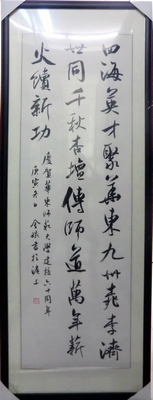 四海英才聚華東九州桃李濟
世同千秋杏壇傳師道萬年薪
火續新功
慶賀華東師範大學建校六十周年
庚寅冬日 書於滬上